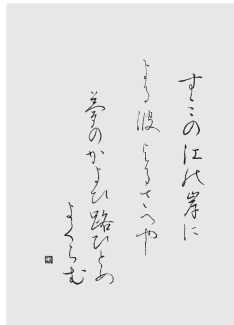 すみの江の岸に
よる波よるさへや
夢のかよひ路ひとめ
よくらむ